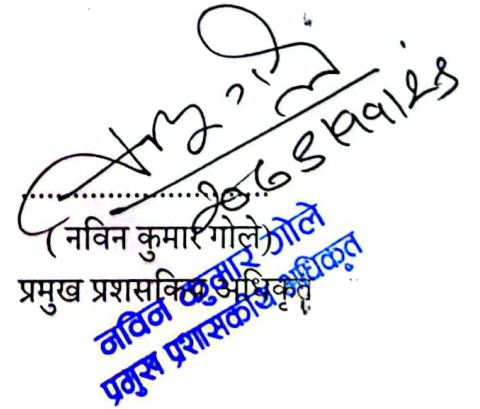 (नविन कुमार गोले)
प्रमुख प्रशसकिय अधिकृत
नविन कुमार गोले
प्रमुख प्रशासकीय अधिकृत